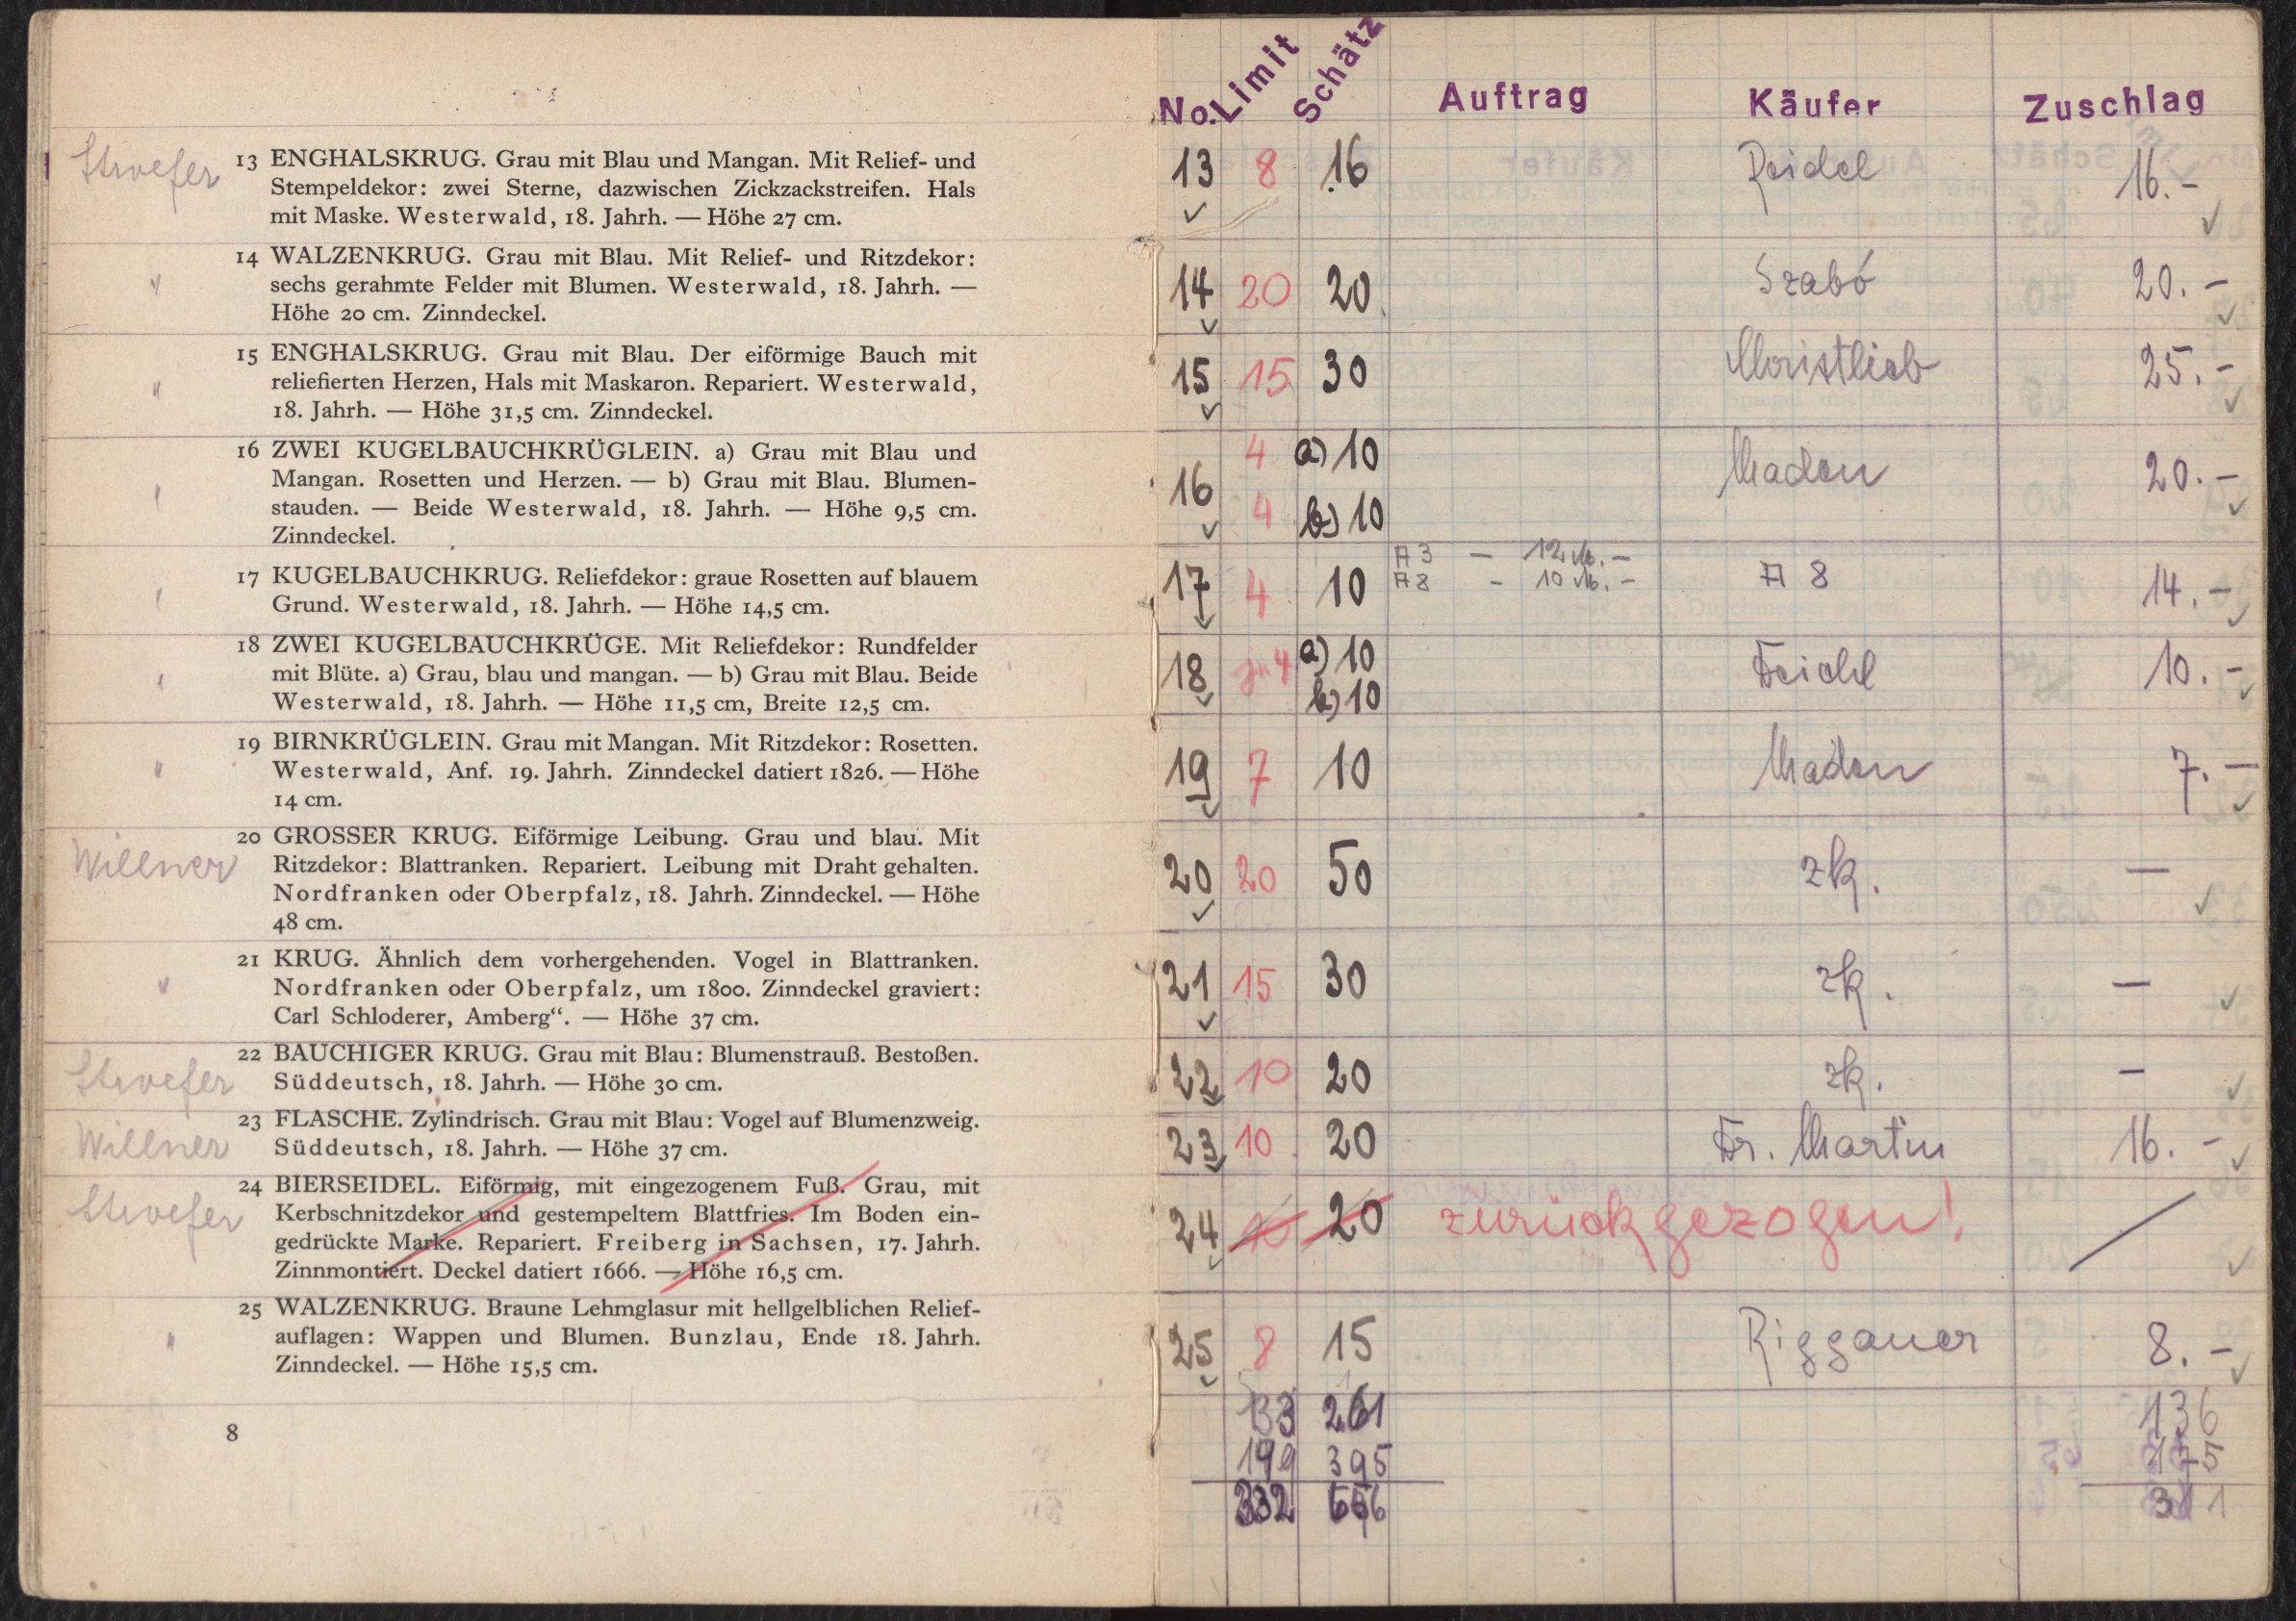 Stroefer 13 ENGHALSKRUG. Grau mit Blau und Mangan. Mit Relief- und
Stempeldekor: zwei Sterne, dazwischen Zickzackstreifen. Hals
mit Maske. Westerwald, 18. Jahrh. — Höhe 27 cm.
14 WALZENKRUG. Grau mit Blau. Mit Relief- und Ritzdekor:
" sechs gerahmte Felder mit Blumen. Westerwald, 18. Jahrh. —
Höhe 20 cm. Zinndeckel.
15 ENGHALSKRUG. Grau mit Blau. Der eiförmige Bauch mit
" reliefierten Herzen, Hals mit Maskaron. Repariert. Westerwald,
18. Jahrh. — Höhe 31,5 cm. Zinndeckel.
16 ZWEI KUGELBAUCHKRÜGLEIN. a) Grau mit Blau und
" Mangan. Rosetten und Herzen. — b) Grau mit Blau. Blumen-
stauden. — Beide Westerwald, 18. Jahrh. — Höhe 9,5 cm.
Zinndeckel.
17 KUGELBAUCHKRUG. Reliefdekor: graue Rosetten auf blauem
" Grund. Westerwald, 18. Jahrh. — Höhe 14,5 cm.
18 ZWEI KUGELBAUCHKRÜGE. Mit Reliefdekor: Rundfelder
" mit Blüte. a) Grau, blau und mangan. — b) Grau mit Blau. Beide
Westerwald, 18. Jahrh. — Höhe 11,5 cm, Breite 12,5 cm.
19 BIRNKRÜGLEIN. Grau mit Mangan. Mit Ritzdekor: Rosetten.
" Westerwald, Anf. 19. Jahrh. Zinndeckel datiert 1826. — Höhe
14 cm.
20 GROSSER KRUG. Eiförmige Leibung. Grau und blau. Mit
Willner Ritzdekor: Blattranken. Repariert. Leibung mit Draht gehalten.
Nordfranken oder Oberpfalz, 18. Jahrh. Zinndeckel. — Höhe
48 cm.
21 KRUG. Ähnlich dem vorhergehenden. Vogel in Blattranken.
" Nordfranken oder Oberpfalz, um 1800. Zinndeckel graviert:
Carl Schloderer, Amberg“. — Höhe 37 cm.
22 BAUCHIGER KRUG. Grau mit Blau: Blumenstrauß. Bestoßen.
Stroefer Süddeutsch, 18. Jahrh. — Höhe 30 cm.
23 FLASCHE. Zylindrisch. Grau mit Blau: Vogel auf Blumenzweig.
Willner Süddeutsch, 18. Jahrh. — Höhe 37 cm.
24 BIERSEIDEL. Eiförmig, mit eingezogenem Fuß. Grau, mit
Stroefer Kerbschnitzdekor und gestempeltem Blattfries. Im Boden ein-
gedrückte Marke. Repariert. Freiberg in Sachsen, 17. Jahrh.
Zinnmontiert. Deckel datiert 1666. — Höhe 16,5 cm.
25 WALZENKRUG. Braune Lehmglasur mit hellgelblichen Relief-
" auflagen: Wappen und Blumen. Bunzlau, Ende 18. Jahrh.
Zinndeckel. — Höhe 15,5 cm.
8
No. Limit Schätz Auftrag Käufer Zuschlag
13 8 16 Reidel 16.-
14 20 20 Szabó 20.-
15 15 30 Christlieb 25.-
4 a) 10
16 Maden 20.-
4 b) 10
A 3 - 12 M.-
17 4 10 A 8 - 10 M.- A 8 14.-
a) 10
18 je 4 Feichl 10.-
b) 10
19 7 10 Maden 7.-
20 20 50 zk. —
21 15 30 zk. —
22 10 20 zk. —
23 10 20 Dr. Martin 16.-
24 10 20 zurückgezogen!
25 8 15 Riggauer 8.-
133 261 136
199 395 175
332 656 311